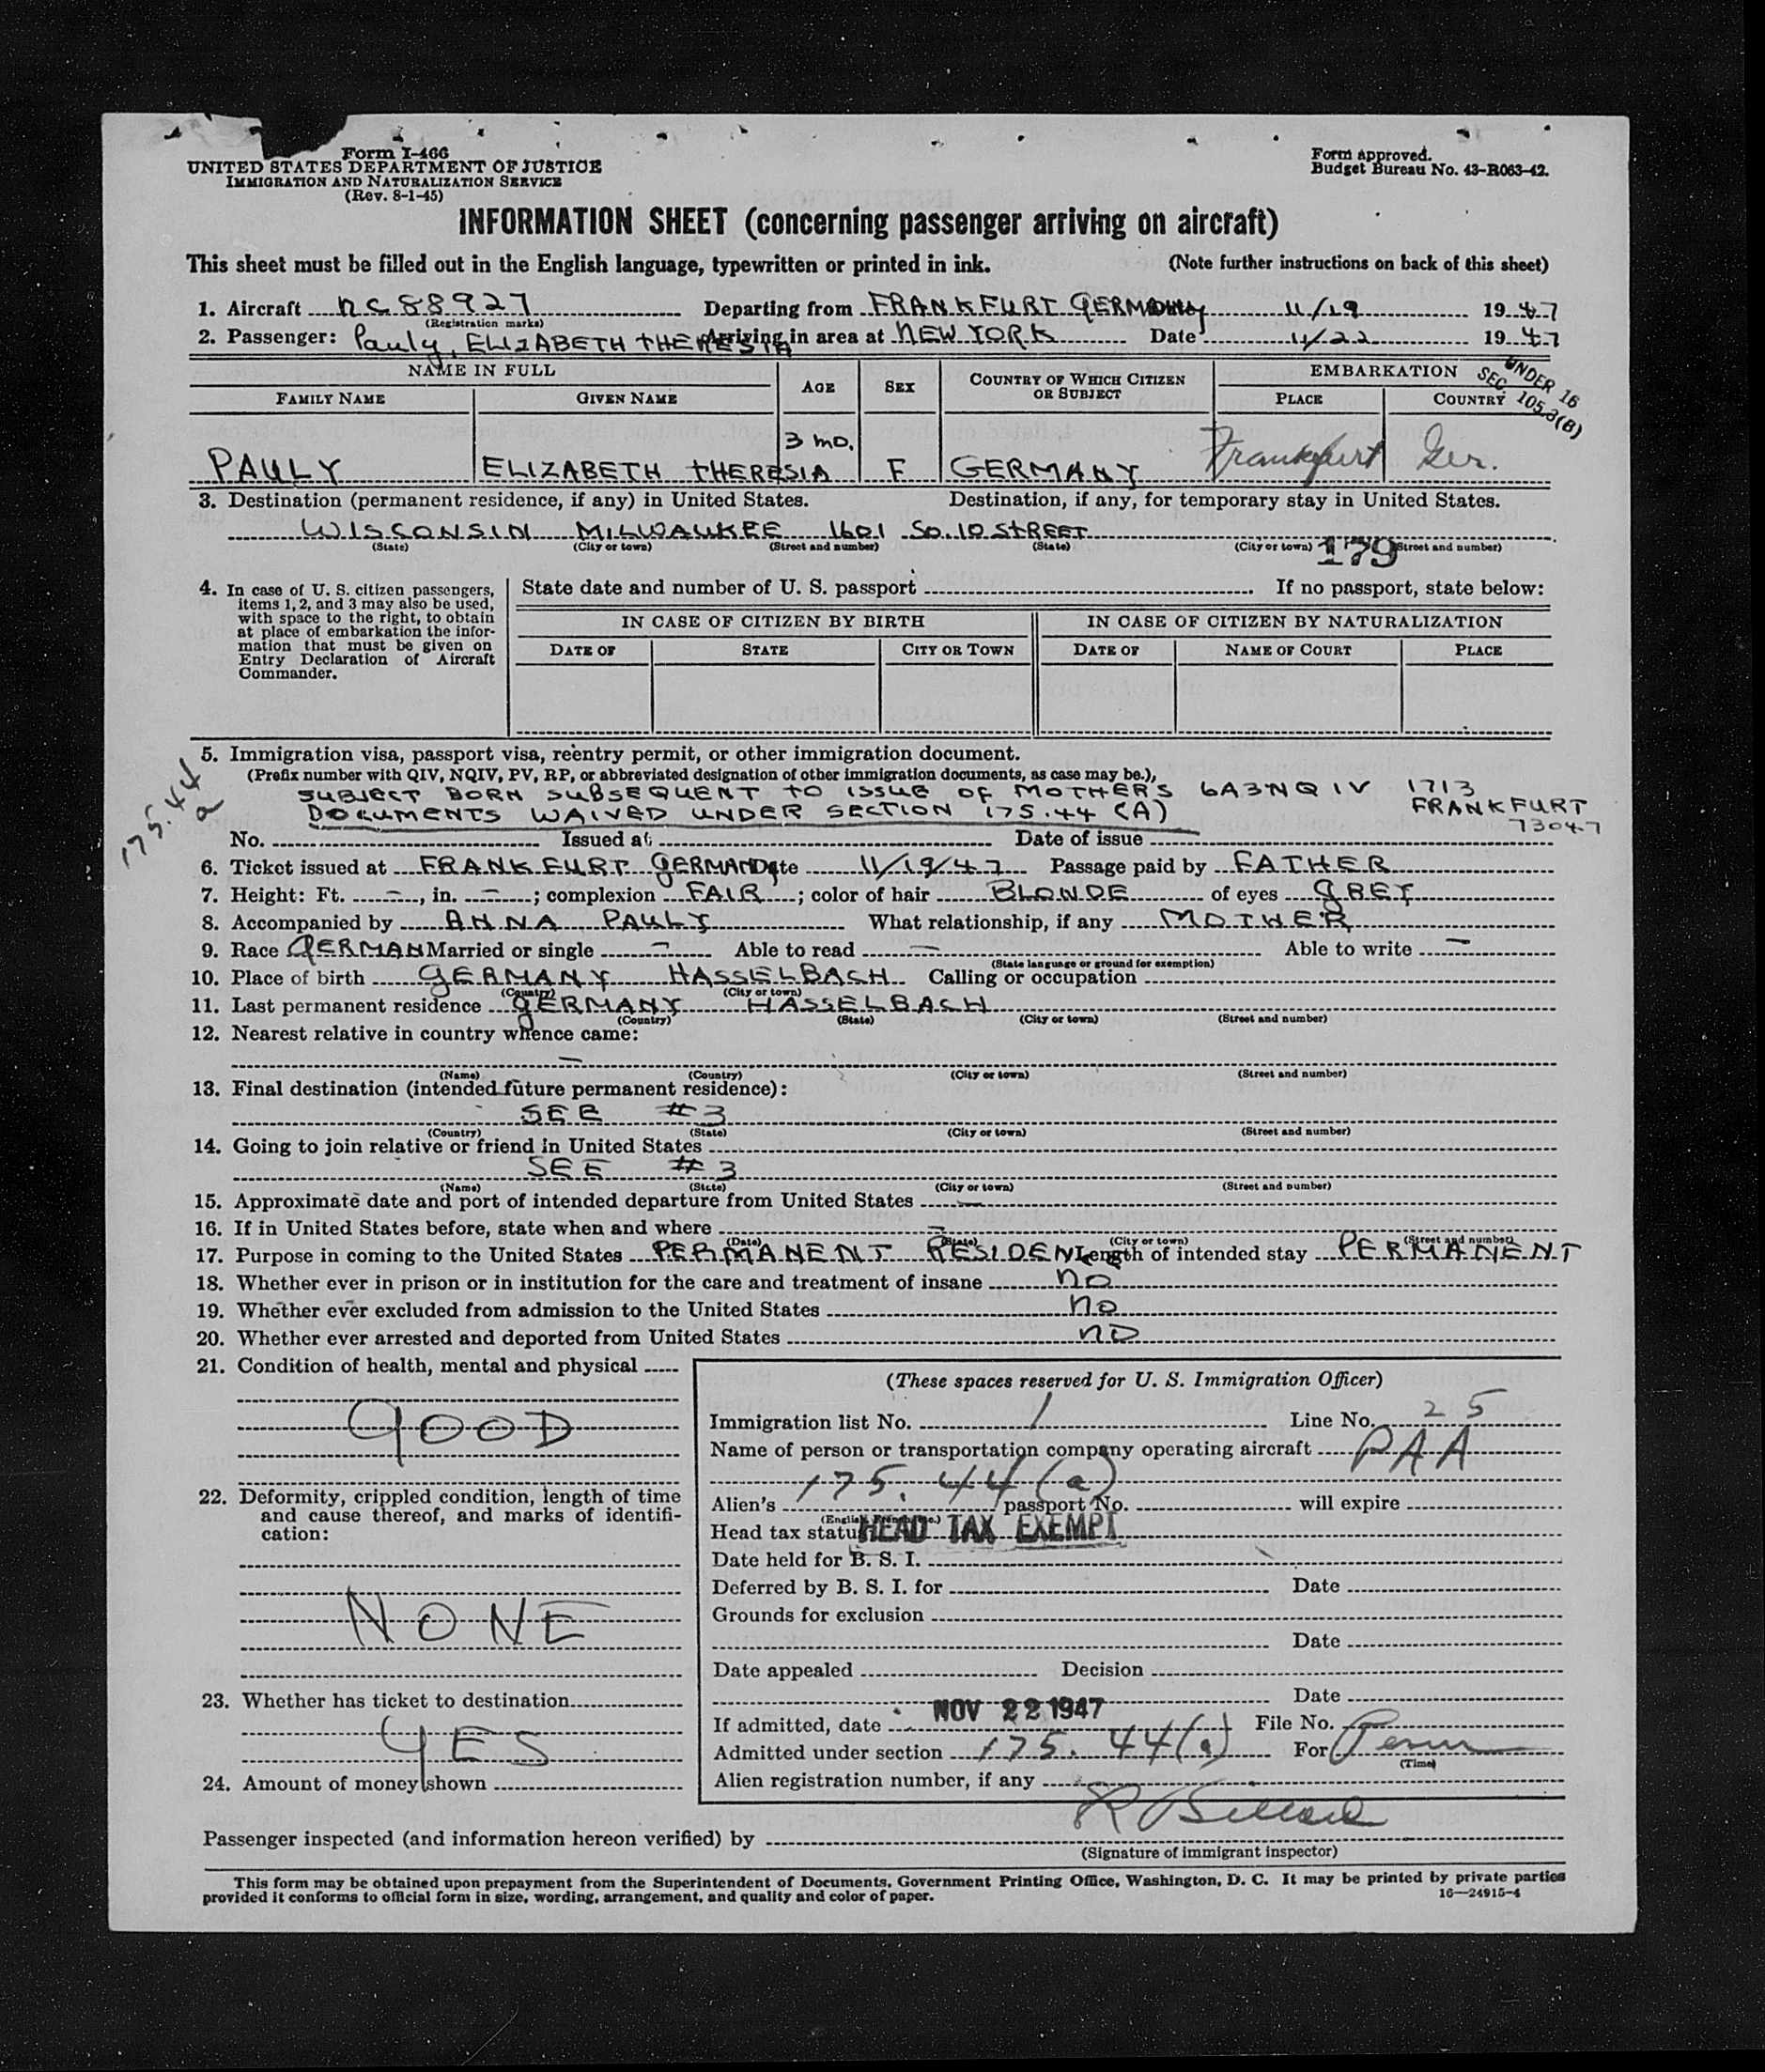 Form I-466
UNITED STATES DEPARTMENT OF JUSTICE
IMMIGRATION AND NATURALIZATION SERVICE
(Rev. 8-1-45)
Form approved.
Budget Bureau No. 43-R063-42.
INFORMATION SHEET (concerning passenger arriving on aircraft)
This sheet must be filled out in the English language, typewritten or printed in ink. (Note further instructions on back of this sheet)
1. Aircraft NC 88927 Departing from FRANKFURT GERMANY 11/19 1947
(Registration marks)
2. Passenger: Pauly, ELIZABETH THERESIA Arriving in area at NEW YORK Date 11/22 1947
NAME IN FULL AGE SEX COUNTRY OF WHICH CITIZEN OR SUBJECT EMBARKATION
FAMILY NAME GIVEN NAME PLACE COUNTRY
UNDER 16
SEC. 105.3(B)
3 mo.
PAULY ELIZABETH THERESIA F GERMANY Frankfurt Ger.
3. Destination (permanent residence, if any) in United States. Destination, if any, for temporary stay in United States.
WISCONSIN MILWAUKEE 1601 SO. 10 STREET
(State) (City or town) (Street and number) (State) (City or town) (Street and number)
179
4. In case of U. S. citizen passengers, items 1, 2, and 3 may also be used, with space to the right, to obtain at place of embarkation the information that must be given on Entry Declaration of Aircraft Commander.
State date and number of U. S. passport If no passport, state below:
IN CASE OF CITIZEN BY BIRTH IN CASE OF CITIZEN BY NATURALIZATION
DATE OF STATE CITY OR TOWN DATE OF NAME OF COURT PLACE
175.44 a
5. Immigration visa, passport visa, reentry permit, or other immigration document.
(Prefix number with QIV, NQIV, PV, RP, or abbreviated designation of other immigration documents, as case may be.),
SUBJECT BORN SUBSEQUENT TO ISSUE OF MOTHER'S 6A3NQIV 1713
DOCUMENTS WAIVED UNDER SECTION 175.44 (A) FRANKFURT
73047
No. Issued at Date of issue
6. Ticket issued at FRANKFURT GERMANY Date 11/19/47 Passage paid by FATHER
7. Height: Ft. –, in. –; complexion FAIR; color of hair BLONDE of eyes GREY
8. Accompanied by ANNA PAULY What relationship, if any MOTHER
9. Race GERMAN Married or single – Able to read – Able to write –
(State language or ground for exemption)
10. Place of birth GERMANY HASSELBACH Calling or occupation
(Country) (City or town)
11. Last permanent residence GERMANY HASSELBACH
(Country) (State) (City or town) (Street and number)
12. Nearest relative in country whence came:
–
(Name) (Country) (City or town) (Street and number)
13. Final destination (intended future permanent residence):
SEE #3
(Country) (State) (City or town) (Street and number)
14. Going to join relative or friend in United States
SEE #3
(Name) (State) (City or town) (Street and number)
15. Approximate date and port of intended departure from United States –
16. If in United States before, state when and where –
(Date) (State) (City or town) (Street and number)
17. Purpose in coming to the United States PERMANENT RESIDENCE Length of intended stay PERMANENT
18. Whether ever in prison or in institution for the care and treatment of insane NO
19. Whether ever excluded from admission to the United States NO
20. Whether ever arrested and deported from United States NO
21. Condition of health, mental and physical
GOOD
22. Deformity, crippled condition, length of time and cause thereof, and marks of identification:
NONE
23. Whether has ticket to destination
YES
24. Amount of money shown
(These spaces reserved for U. S. Immigration Officer)
Immigration list No. 1 Line No. 25
Name of person or transportation company operating aircraft PAA
Alien's 175.44(a) passport No. will expire
Head tax status HEAD TAX EXEMPT
Date held for B. S. I.
Deferred by B. S. I. for Date
Grounds for exclusion
Date
Date appealed Decision
Date
If admitted, date NOV 22 1947 File No.
Admitted under section 175.44(a) For Perm
(Time)
Alien registration number, if any
Passenger inspected (and information hereon verified) by
(Signature of immigrant inspector)
This form may be obtained upon prepayment from the Superintendent of Documents, Government Printing Office, Washington, D. C. It may be printed by private parties
provided it conforms to official form in size, wording, arrangement, and quality and color of paper. 16—24915-4